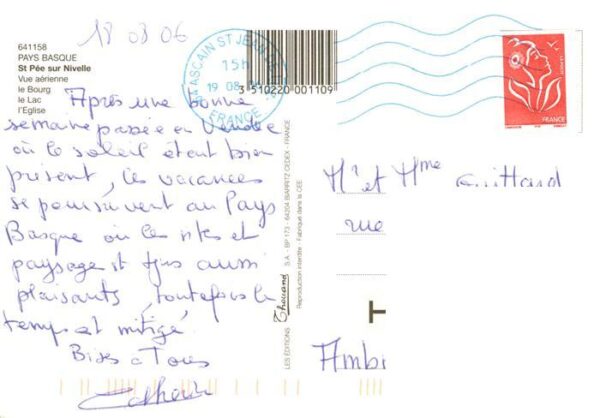 18 08 06
641158
PAYS BASQUE
St Pée sur Nivelle
Vue aérienne
le Bourg
le Lac
l'Eglise
Après une bonne
semaine passée en Vendée
où le soleil étant bien
présent, les vacances
se poursuivent au Pays
Basque où les sites et
paysage st tjrs aussi
plaisants, toutefois le
temps est mitigé.
Bises à Tous
ASCAIN ST JEAN
15h
19 08
FRANCE
3 510220 001109
LES ÉDITIONS Thouand S.A. - BP 173 - 64204 BIARRITZ CEDEX - FRANCE
Reproduction interdite - Fabriqué dans la CEE
FRANCE
Mr et Mme Guittard
rue
T
Ambi